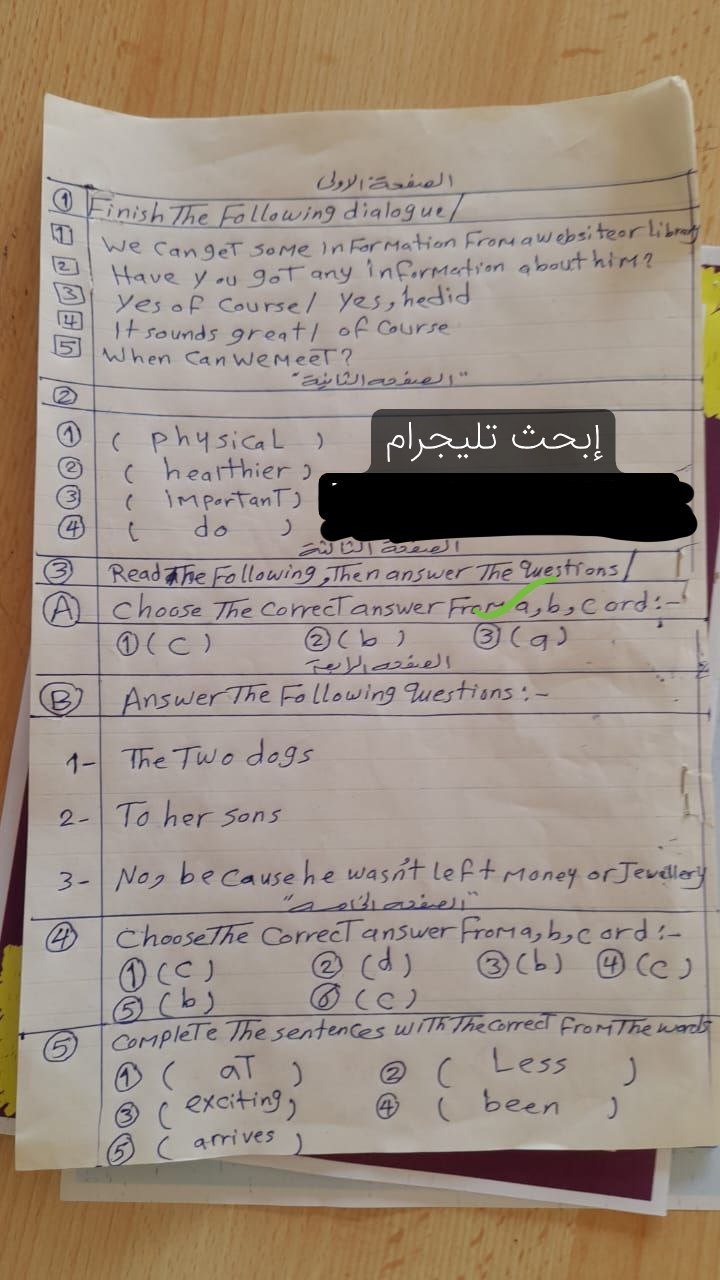 الصفحة الاولى
① Finish The Following dialogue/
1 We can get some information from a website or library
2 Have you got any information about him?
3 yes of course/ yes, he did
4 It sounds great/ of course
5 When can we meet?
"الصفحة الثانية"
②
① ( physical )
إبحث تليجرام
② ( healthier )
③ ( important )
④ ( do )
الصفحة الثالثة
③ Read The Following, Then answer The questions/
A Choose The correct answer From a, b, c or d:-
① (c) ② (b) ③ (a)
الصفحة الرابعة
B Answer The Following questions:-
1- The Two dogs
2- To her sons
3- No, because he wasn't left money or Jewellery
"الصفحة الخامسة"
④ Choose The correct answer From a, b, c or d:-
① (c) ② (d) ③ (b) ④ (c)
⑤ (b) ⑥ (c)
⑤ Complete The sentences with The correct From The words
① ( at ) ② ( Less )
③ ( exciting ) ④ ( been )
⑤ ( arrives )